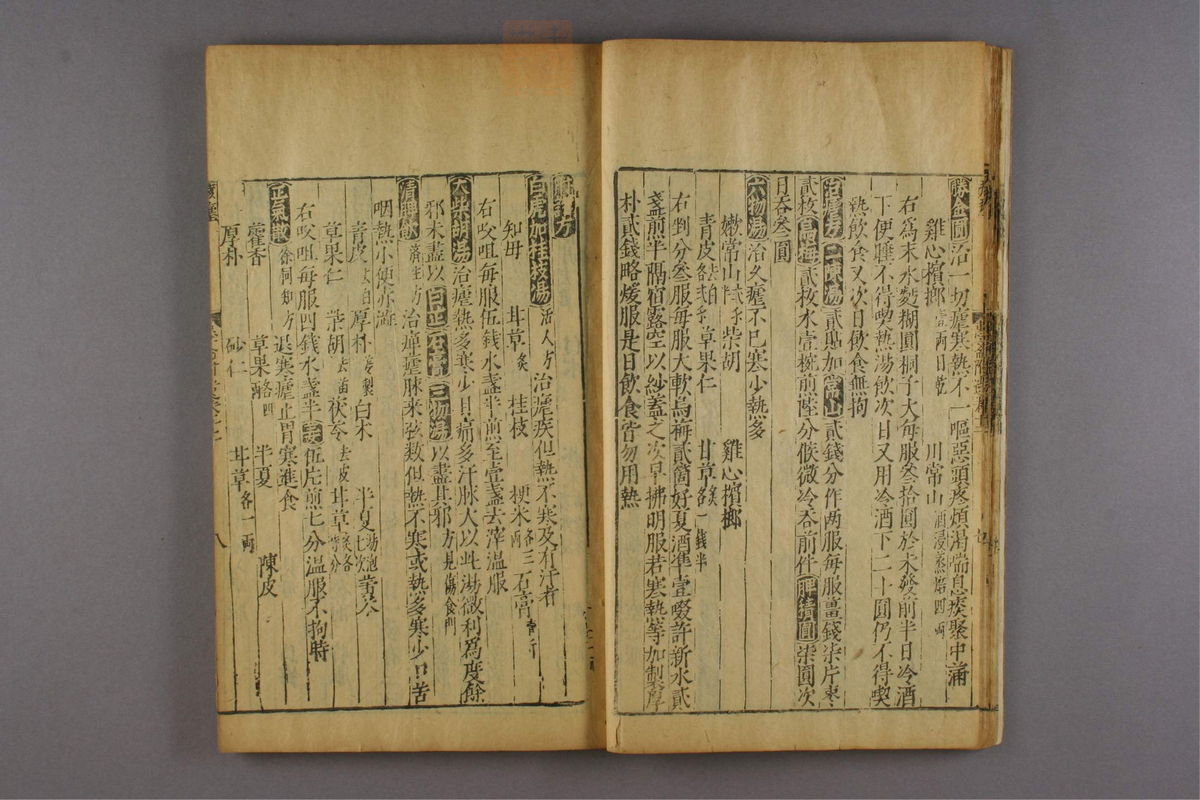 勝金圓治一切瘧寒熱不一嘔惡頭疼煩渴喘息痰聚中滿
雞心檳榔壹兩日乾 川常山酒浸蒸焙四兩
右爲末水麪糊圓桐子大每服叄拾圓於未發前半日冷酒
下便睡不得喫熱湯飲次日又用冷酒下二十圓仍不得喫
熱飲食又次日飲食無拘
二陳湯貳貼加常山貳錢分作兩服每服薑錢柒片棗
貳枚烏梅貳枚水壹椀煎陸分候微冷吞前件脾積圓柒圓次
日吞叄圓
六物湯治久瘧不已寒少熱多
嫩常山 柴胡 雞心檳榔
青皮 草果仁 甘草炙各一錢半
右剉分叄服每服大軟烏梅貳箇好夏酒準壹啜許新水貳
盞煎半隔宿露空以紗蓋之次早拂明服若寒熱等加製厚
朴貳錢略煖服是日飲食皆勿用熱
方
白虎加桂枝湯活人方治瘧疾但熱不寒及有汗者
知母 甘草炙 桂枝 粳米各三兩 石膏
右㕮咀每服伍錢水盞半煎至壹盞去滓溫服
大柴胡湯治瘧熱多寒少目痛多汗脉大以此湯微利爲度餘
邪未盡以白芷石膏三物湯以盡其邪方見傷食門
清脾飲濟生方治癉瘧脉來弦數但熱不寒或熱多寒少口苦
咽熱小便赤澁
青皮去白 厚朴薑製 白朮 半夏湯泡七次 黃芩
草果仁 柴胡去苗 茯苓去皮 甘草炙各等分
右㕮咀每服四錢水盞半薑伍片煎七分溫服不拘時
正氣散徐同知方退寒瘧止胃寒進食
藿香 草果各四兩 半夏 陳皮
厚朴 砂仁 甘草各一兩
八